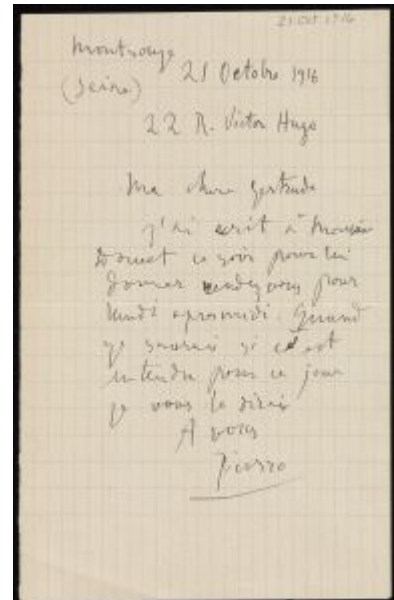 21 Oct 1916
Montrouge
(Seine) 21 Octobre 1916
22 R. Victor Hugo
Ma chere Gertrude
j'ai ecrit à
ce soir pour lui
donner rendez vous pour
lundi apres midi. Quand
je saurais si c'est
entendu pour ce jour
je vous le dirai
A vous
Picasso